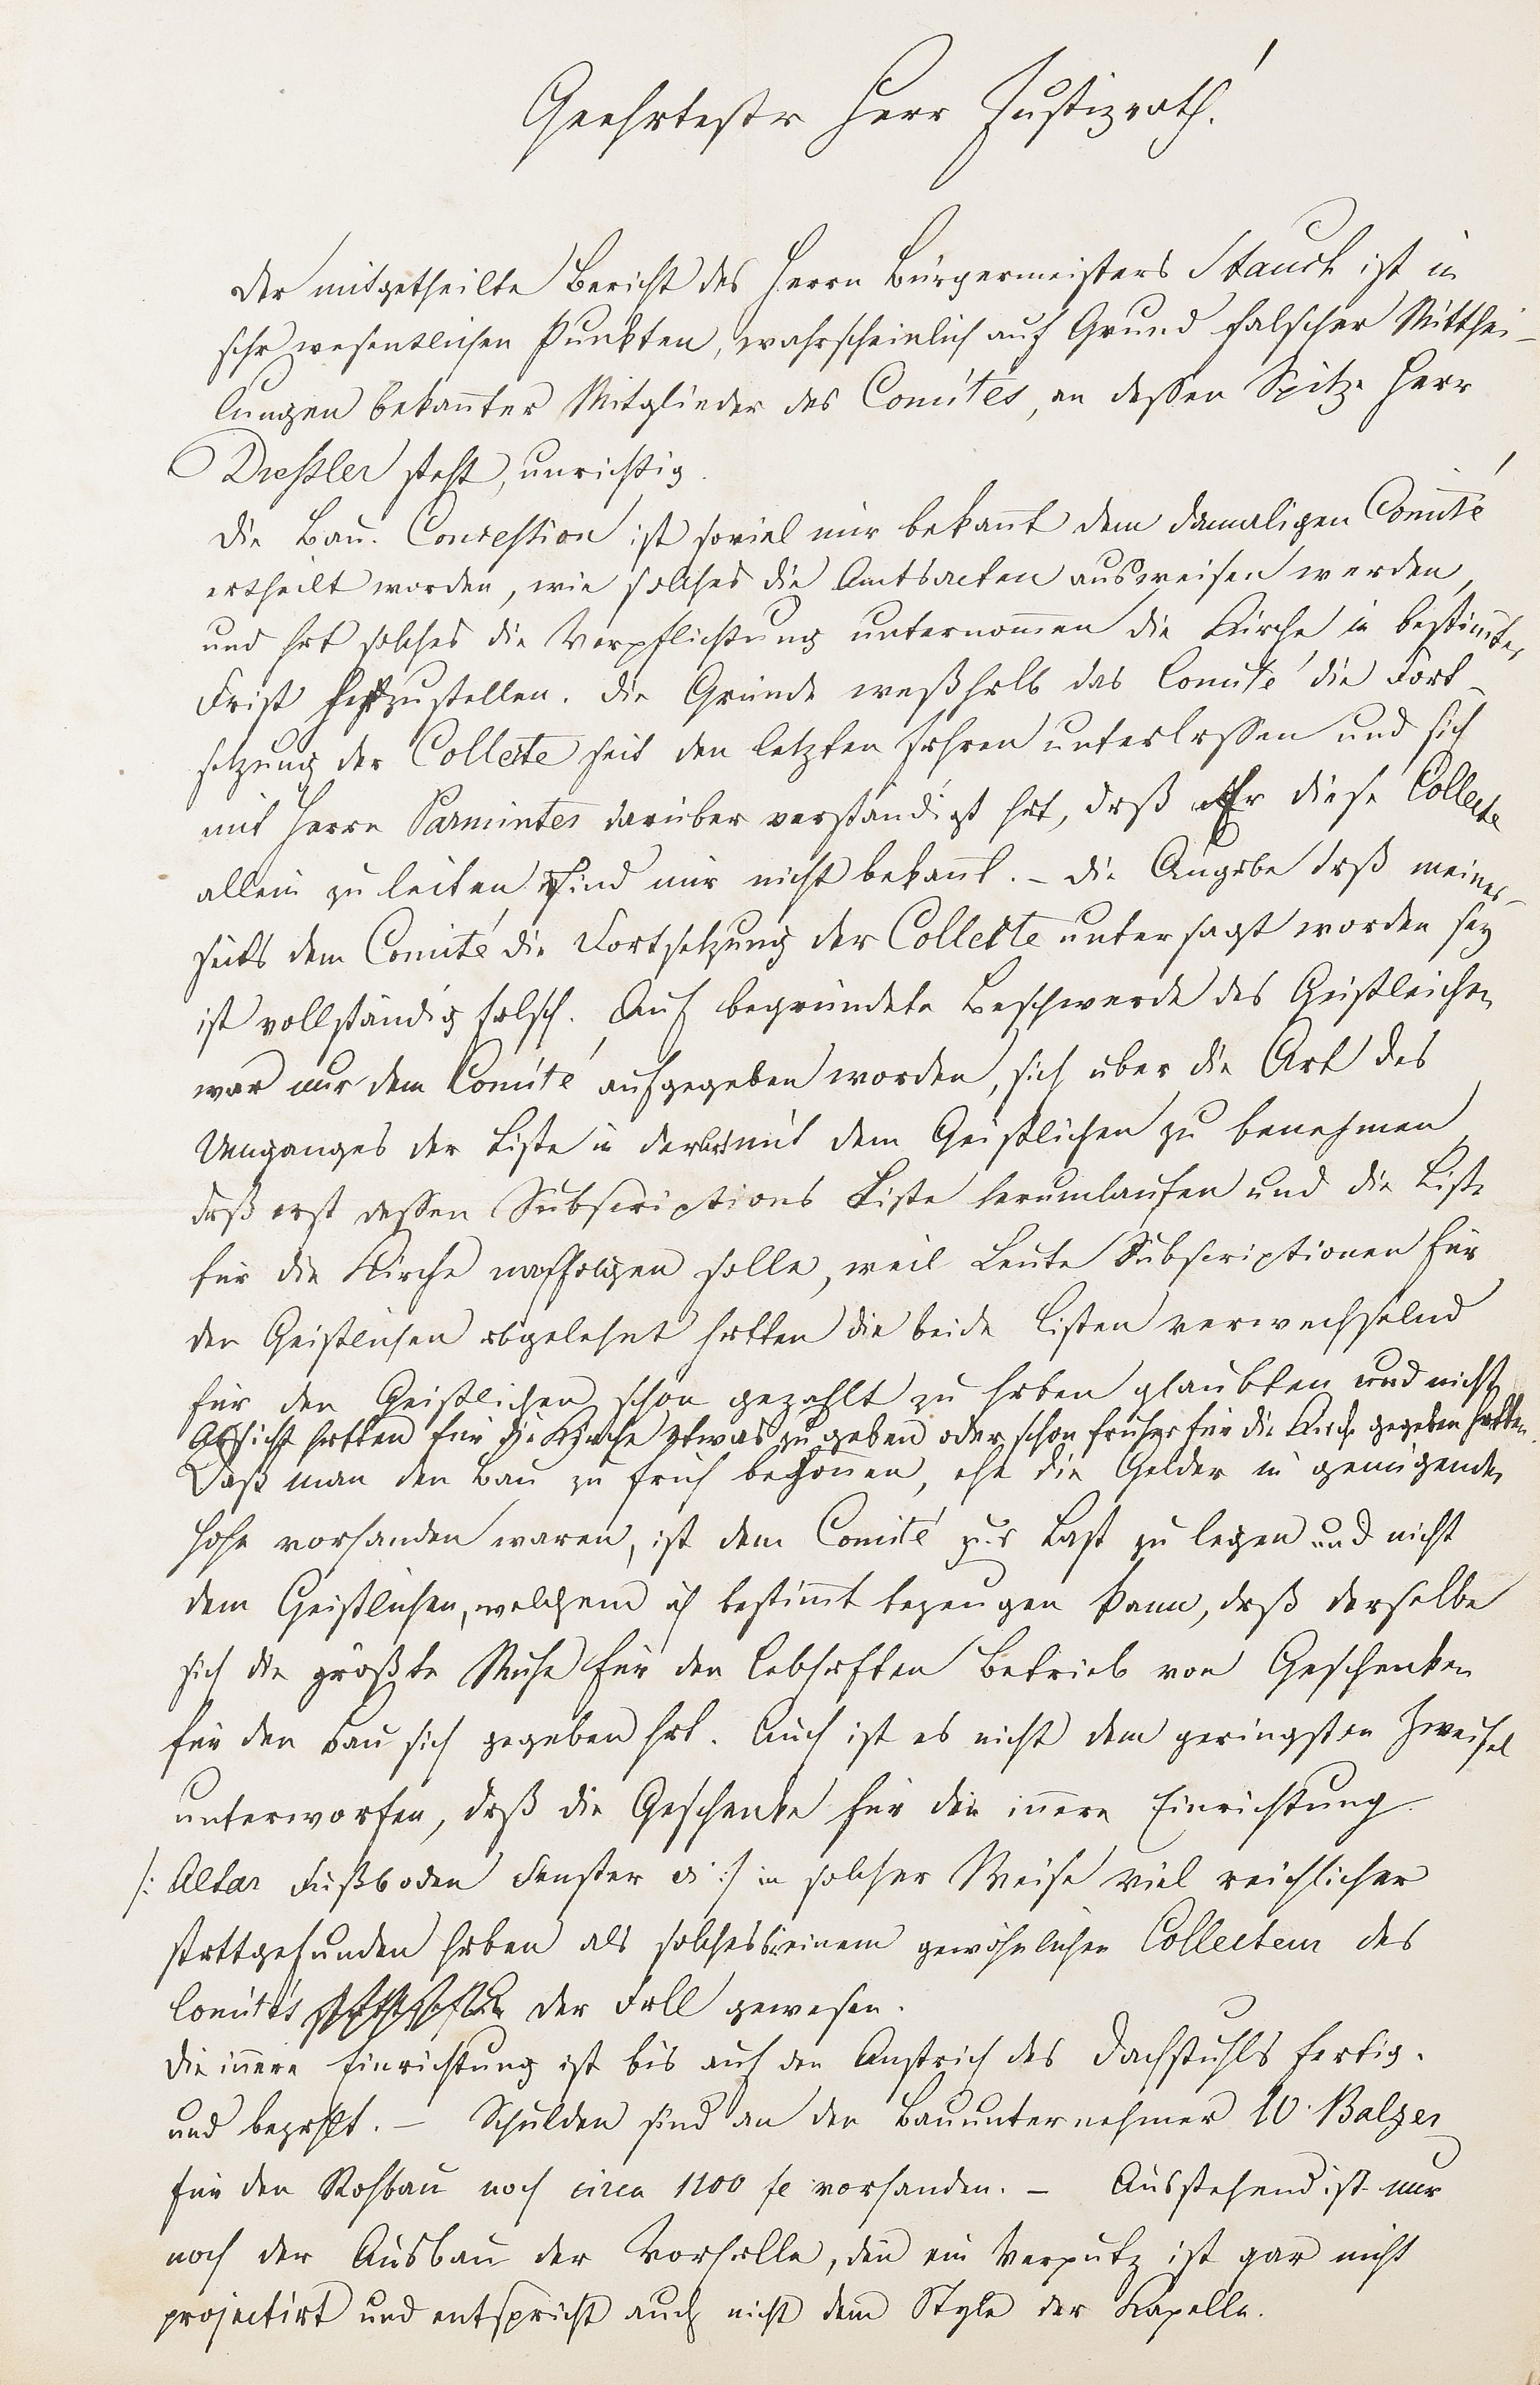 Geehrtester Herr Justizrath!
Der mitgetheilte Bericht des Herrn Bürgermeisters Stauch ist in
sehr wesentlichen Punkten, wahrscheinlich auf Grund falscher Mitthei-
lungen bekannter Mitglieder des Comités, an dessen Spitze Herr
Dreßler steht, unrichtig.
Die Bau-Concession ist soviel mir bekannt dem damaligen Comité
ertheilt worden, wie solches die Amtsacten ausweisen werden,
und hat solches die Verpflichtung unternommen die Kirche in bestimter
Frist herzustellen. Die Gründe weßhalb das Comité die Fort-
setzung der Collecte seit den letzten Jahren unterlassen und sich
mit Herrn Parmenter darüber verständigt hat, daß Er diese Collecte
allein zu leiten sind mir nicht bekannt. – Die Angabe daß meiner-
seits dem Comité die Fortsetzung der Collecte untersagt worden sey
ist vollständig falsch. Auf begründete Beschwerde des Geistleichen
war nur dem Comité aufgegeben worden, sich über die Art des
Umganges der Liste in der mit dem Geistlichen zu benehmen,
daß erst dessen Subscriptions Liste herumlaufen und die Liste
für die Kirche nachfolgen solle, weil Leute Subscriptionen für
den Geistlichen abgelehnt hatten die beide Listen verwechselnd
für den Geistlichen schon gezahlt zu haben glaubten und nicht
Absicht hatten für die Kirche etwas zu geben oder schon früher für die Kirche gegeben hatten.
Daß man den Bau zu früh begonnen, ehe die Gelder in genügender
Höhe vorhanden waren, ist dem Comité zur Last zu legen und nicht
dem Geistlichen, welchem ich bestimmt bezeugen kann, daß derselbe
sich die größte Mühe für den lebhaften Betrieb von Geschenken
für den Bau sich gegeben hat. Auch ist es nicht dem geringsten Zweifel
unterworfen, daß die Geschenke für die innere Einrichtung
/: Altar Fußboden Fenster :/ in solcher Weise viel reichlicher
stattgefunden haben als solches bei einem gewöhnlichen Collecteur des
Comités der Fall gewesen.
Die innere Einrichtung ist bis auf den Anstrich des Dachstuhls fertig.
und bezahlt. – Schulden sind an den Bauunternehmer W. Balzer
für den Rohbau noch circa 1100 fl vorhanden. – Ausstehend ist nur
noch der Ausbau der Vorhalle, den ein Verputz ist gar nicht
projectirt und entspricht auch nicht dem Style der Kapelle.